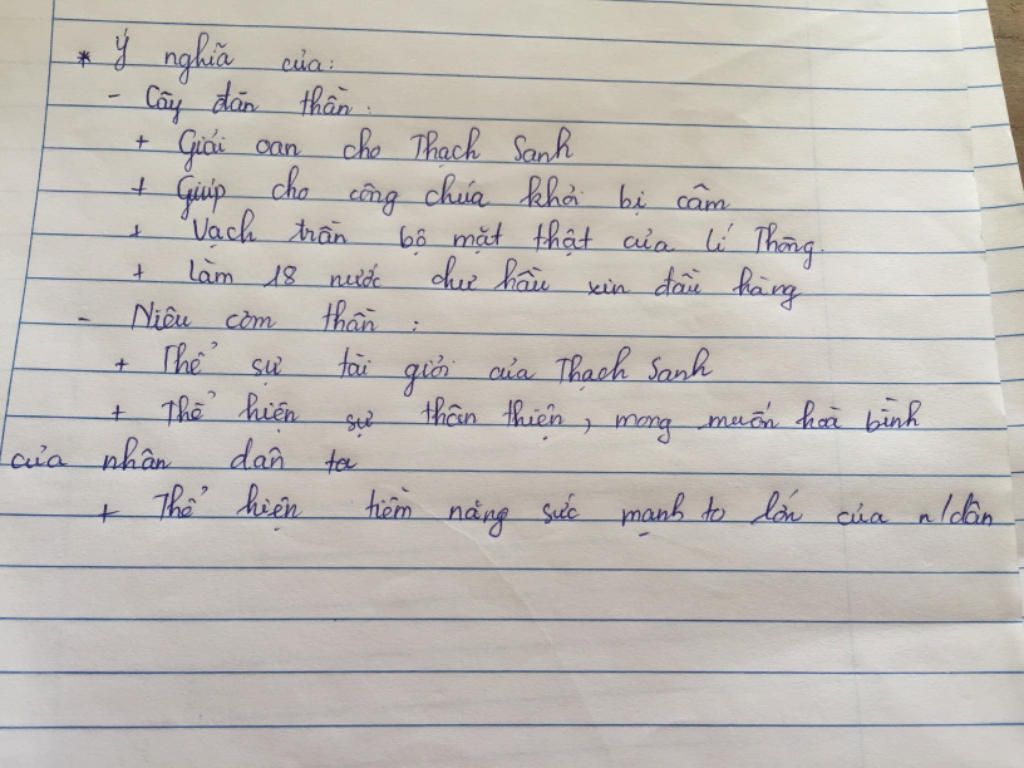 * Ý nghĩa của:
- Cây đàn thần:
+ Giải oan cho Thạch Sanh
+ Giúp cho công chúa khỏi bị câm
+ Vạch trần bộ mặt thật của Lí Thông.
+ Làm 18 nước chư hầu xin đầu hàng
- Niêu cơm thần :
+ Thể sự tài giỏi của Thạch Sanh
+ Thể hiện sự thân thiện, mong muốn hoà bình
của nhân dân ta
+ Thể hiện tiềm năng sức mạnh to lớn của n/dân